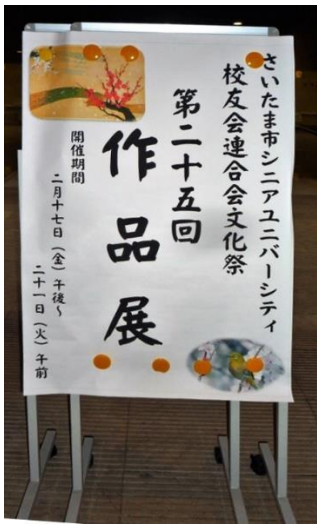 さいたま市シニアユニバーシティ
校友会連合会文化祭
第二十五回
作品展
開催期間
二月十七日（金）午後～
二十一日（火）午前